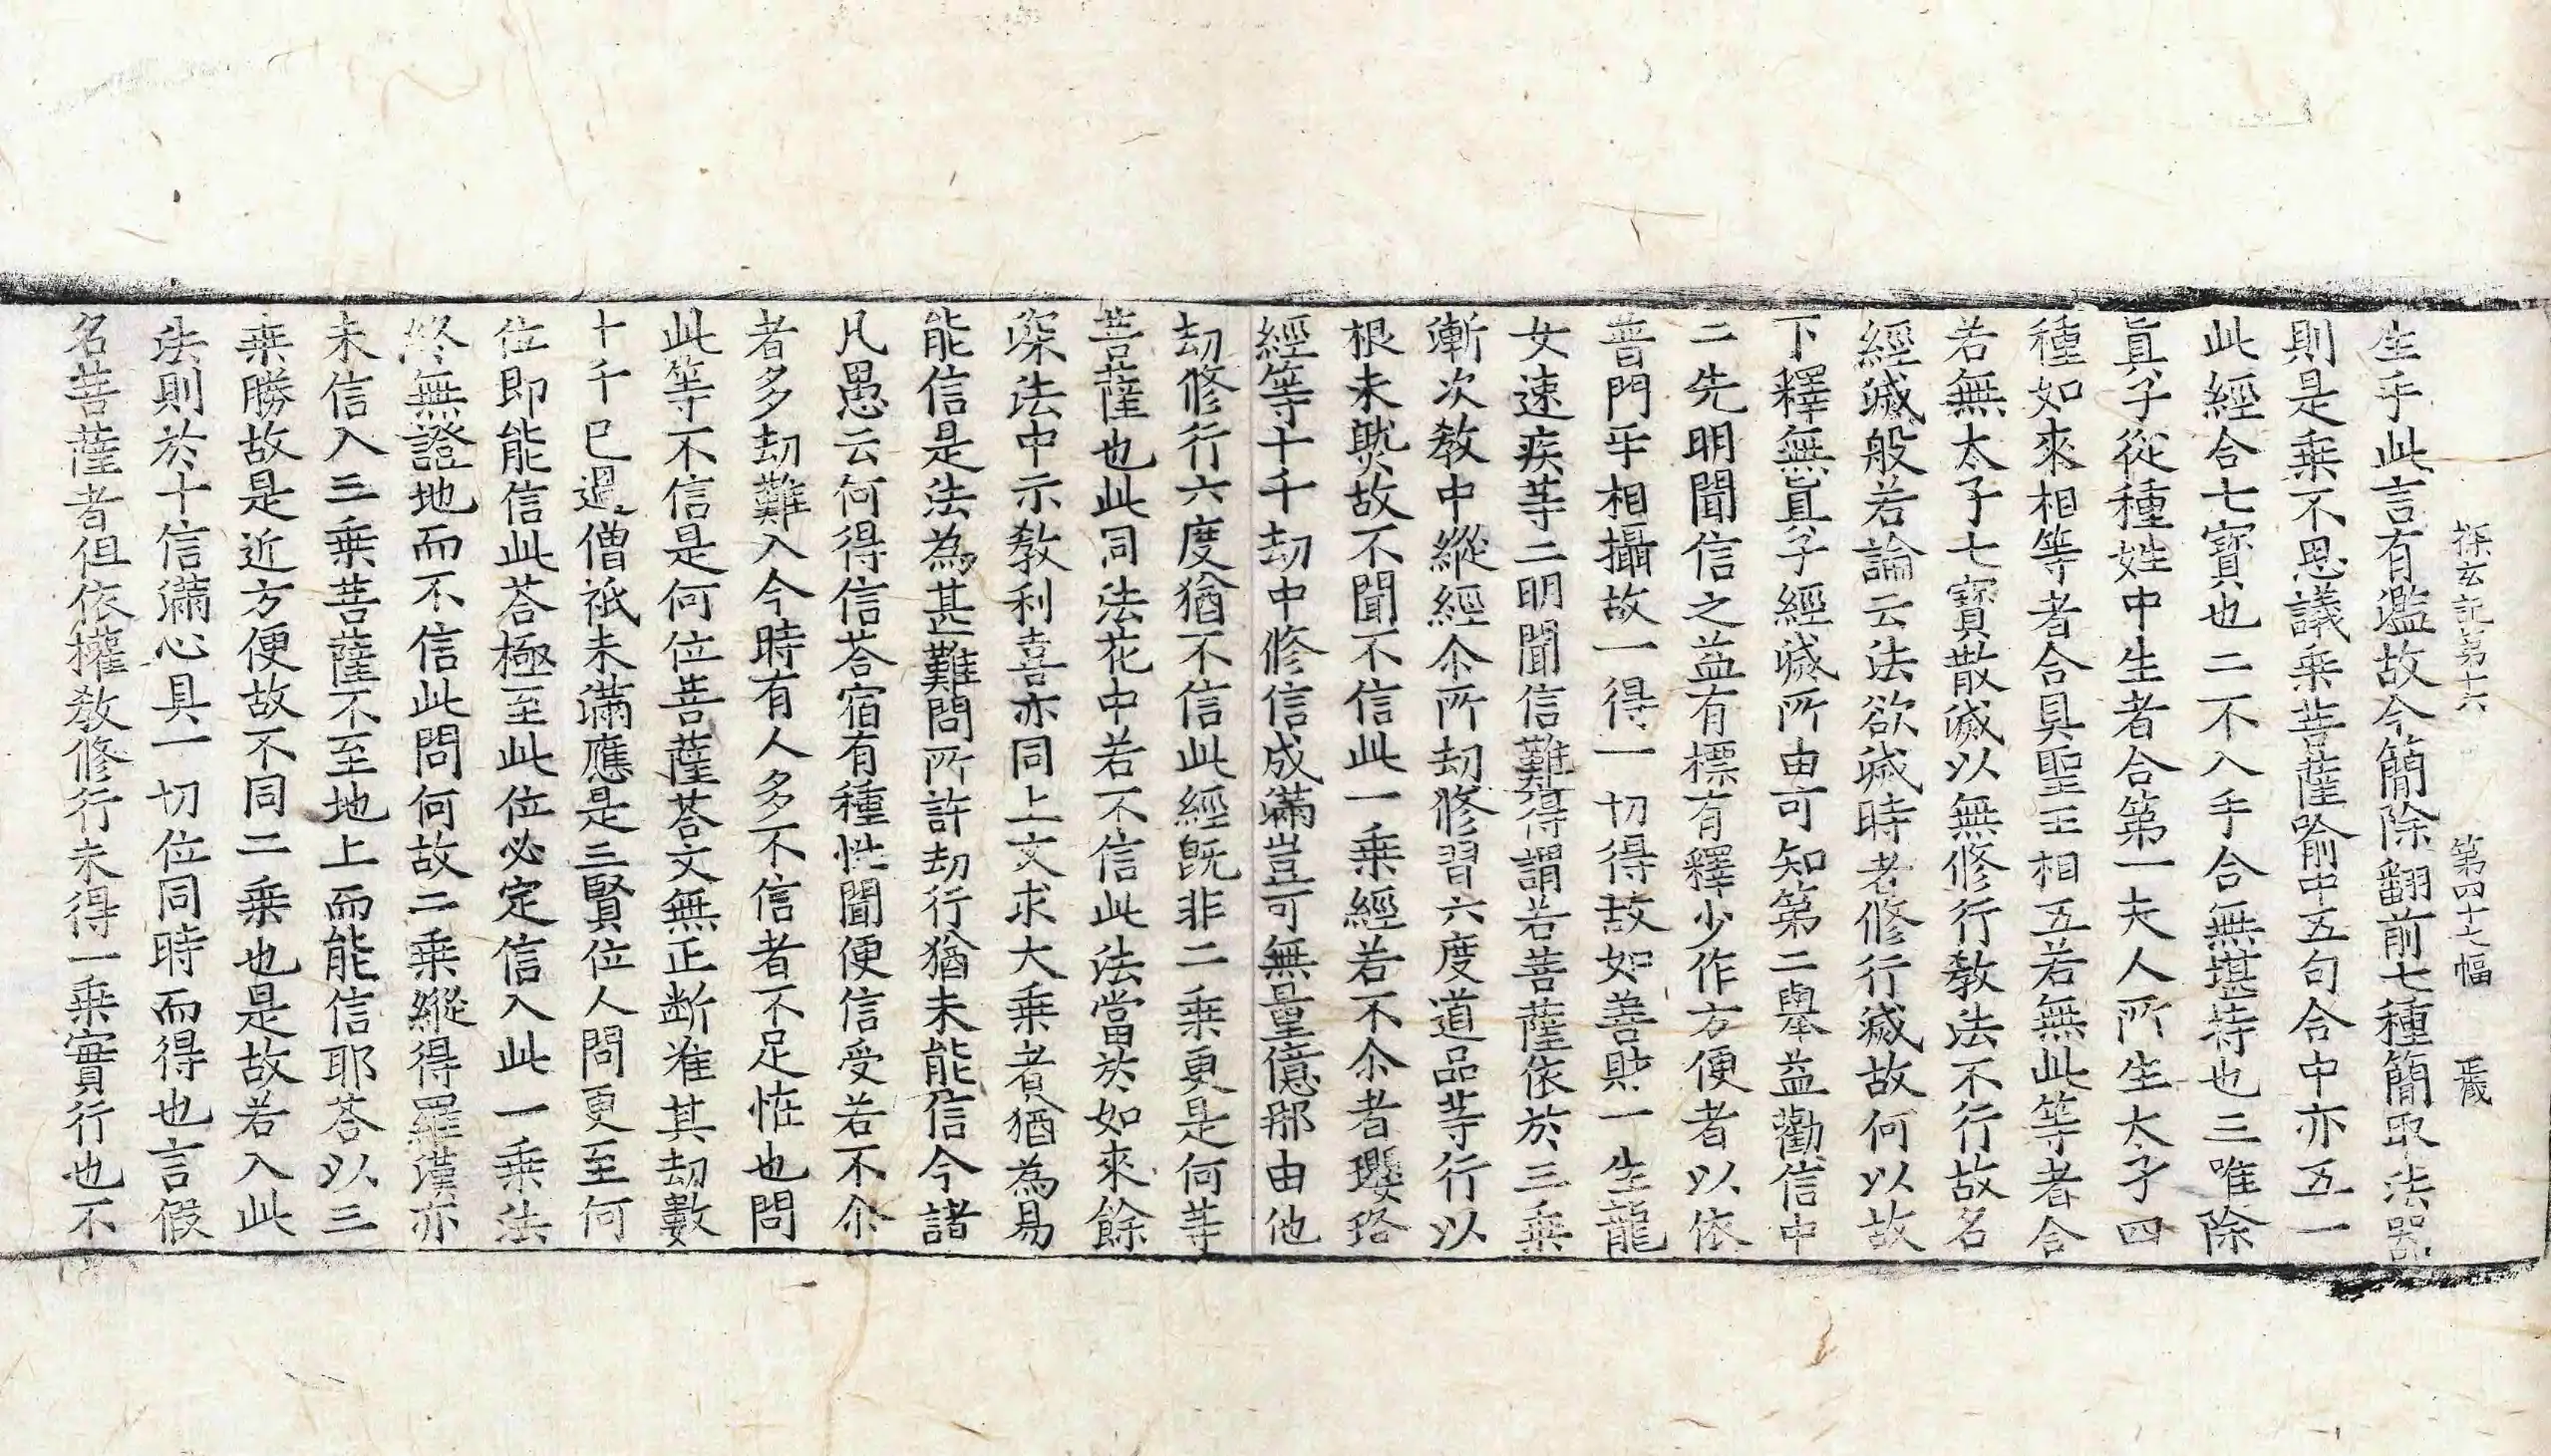 探玄記第十六 第四十七幅 晟
生乎此言有濫故今簡除翻前七種簡取法器
則是乗不思議乗菩薩喻中五句合中亦五一
此經合七寶也二不入手合無堪持也三唯除
真子從種姓中生者合第一夫人所生太子四
種如來相等者合具聖王相五若無此等者合
若無太子七寶散滅以無修行教法不行故名
經滅般若論云法欲滅時者修行滅故何以故
下釋無真子經滅所由可知第二舉益勸信中
二先明聞信之益有標有釋少作方便者以依
普門乎相攝故一得一切得故如善財一生龍
女速疾等二明聞信難得謂若菩薩依於三乗
漸次教中縱經尒所劫修習六度道品等行以
根未熟故不聞不信此一乗經若不尒者瓔珞
經等十千劫中修信成滿豈可無量億那由他
劫修行六度猶不信此經既非二乗更是何等
菩薩也此同法花中若不信此法當於如來餘
深法中示教利喜亦同上文求大乗者猶為易
能信是法為甚難問所許劫行猶未能信今諸
凡愚云何得信荅宿有種性聞便信受若不尒
者多劫難入今時有人多不信者不足恠也問
此等不信是何位菩薩荅文無正断准其劫數
十千已過僧祇未滿應是三賢位人問更至何
位即能信此荅極至此位必定信入此一乗法
終無證地而不信此問何故二乗縱得羅漢亦
未信入三乗菩薩不至地上而能信耶荅以三
乗勝故是近方便故不同二乗也是故若入此
法則於十信滿心具一切位同時而得也言假
名菩薩者但依權教修行未得一乗實行也不